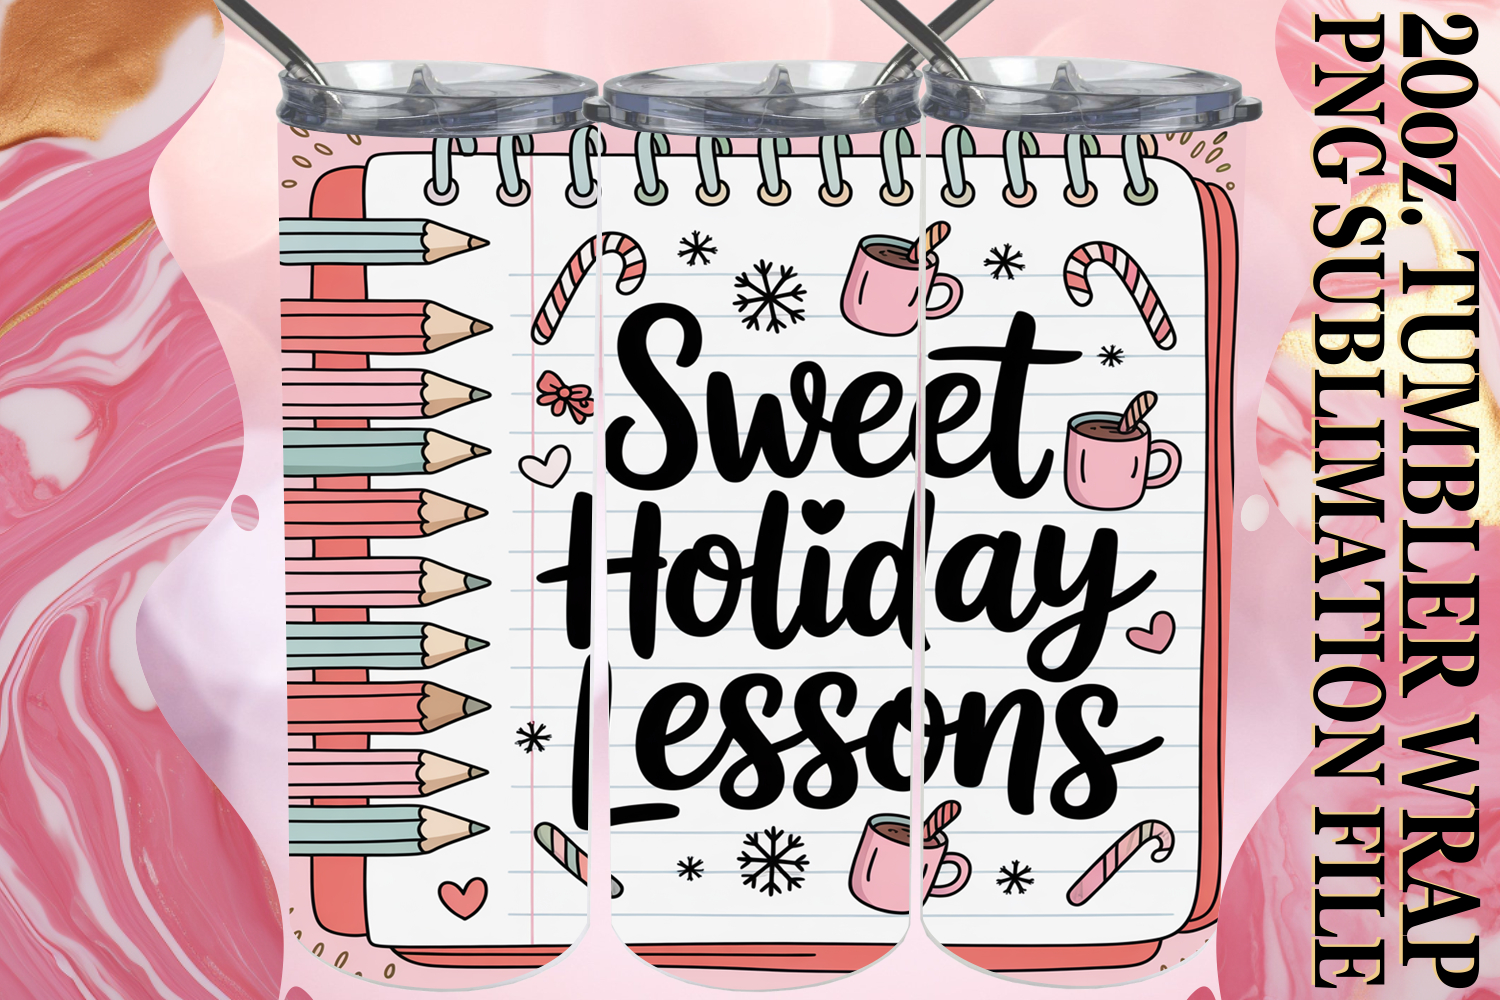 Sweet
Holiday
Lessons
20oz. TUMBLER WRAP
PNG SUBLIMATION FILE